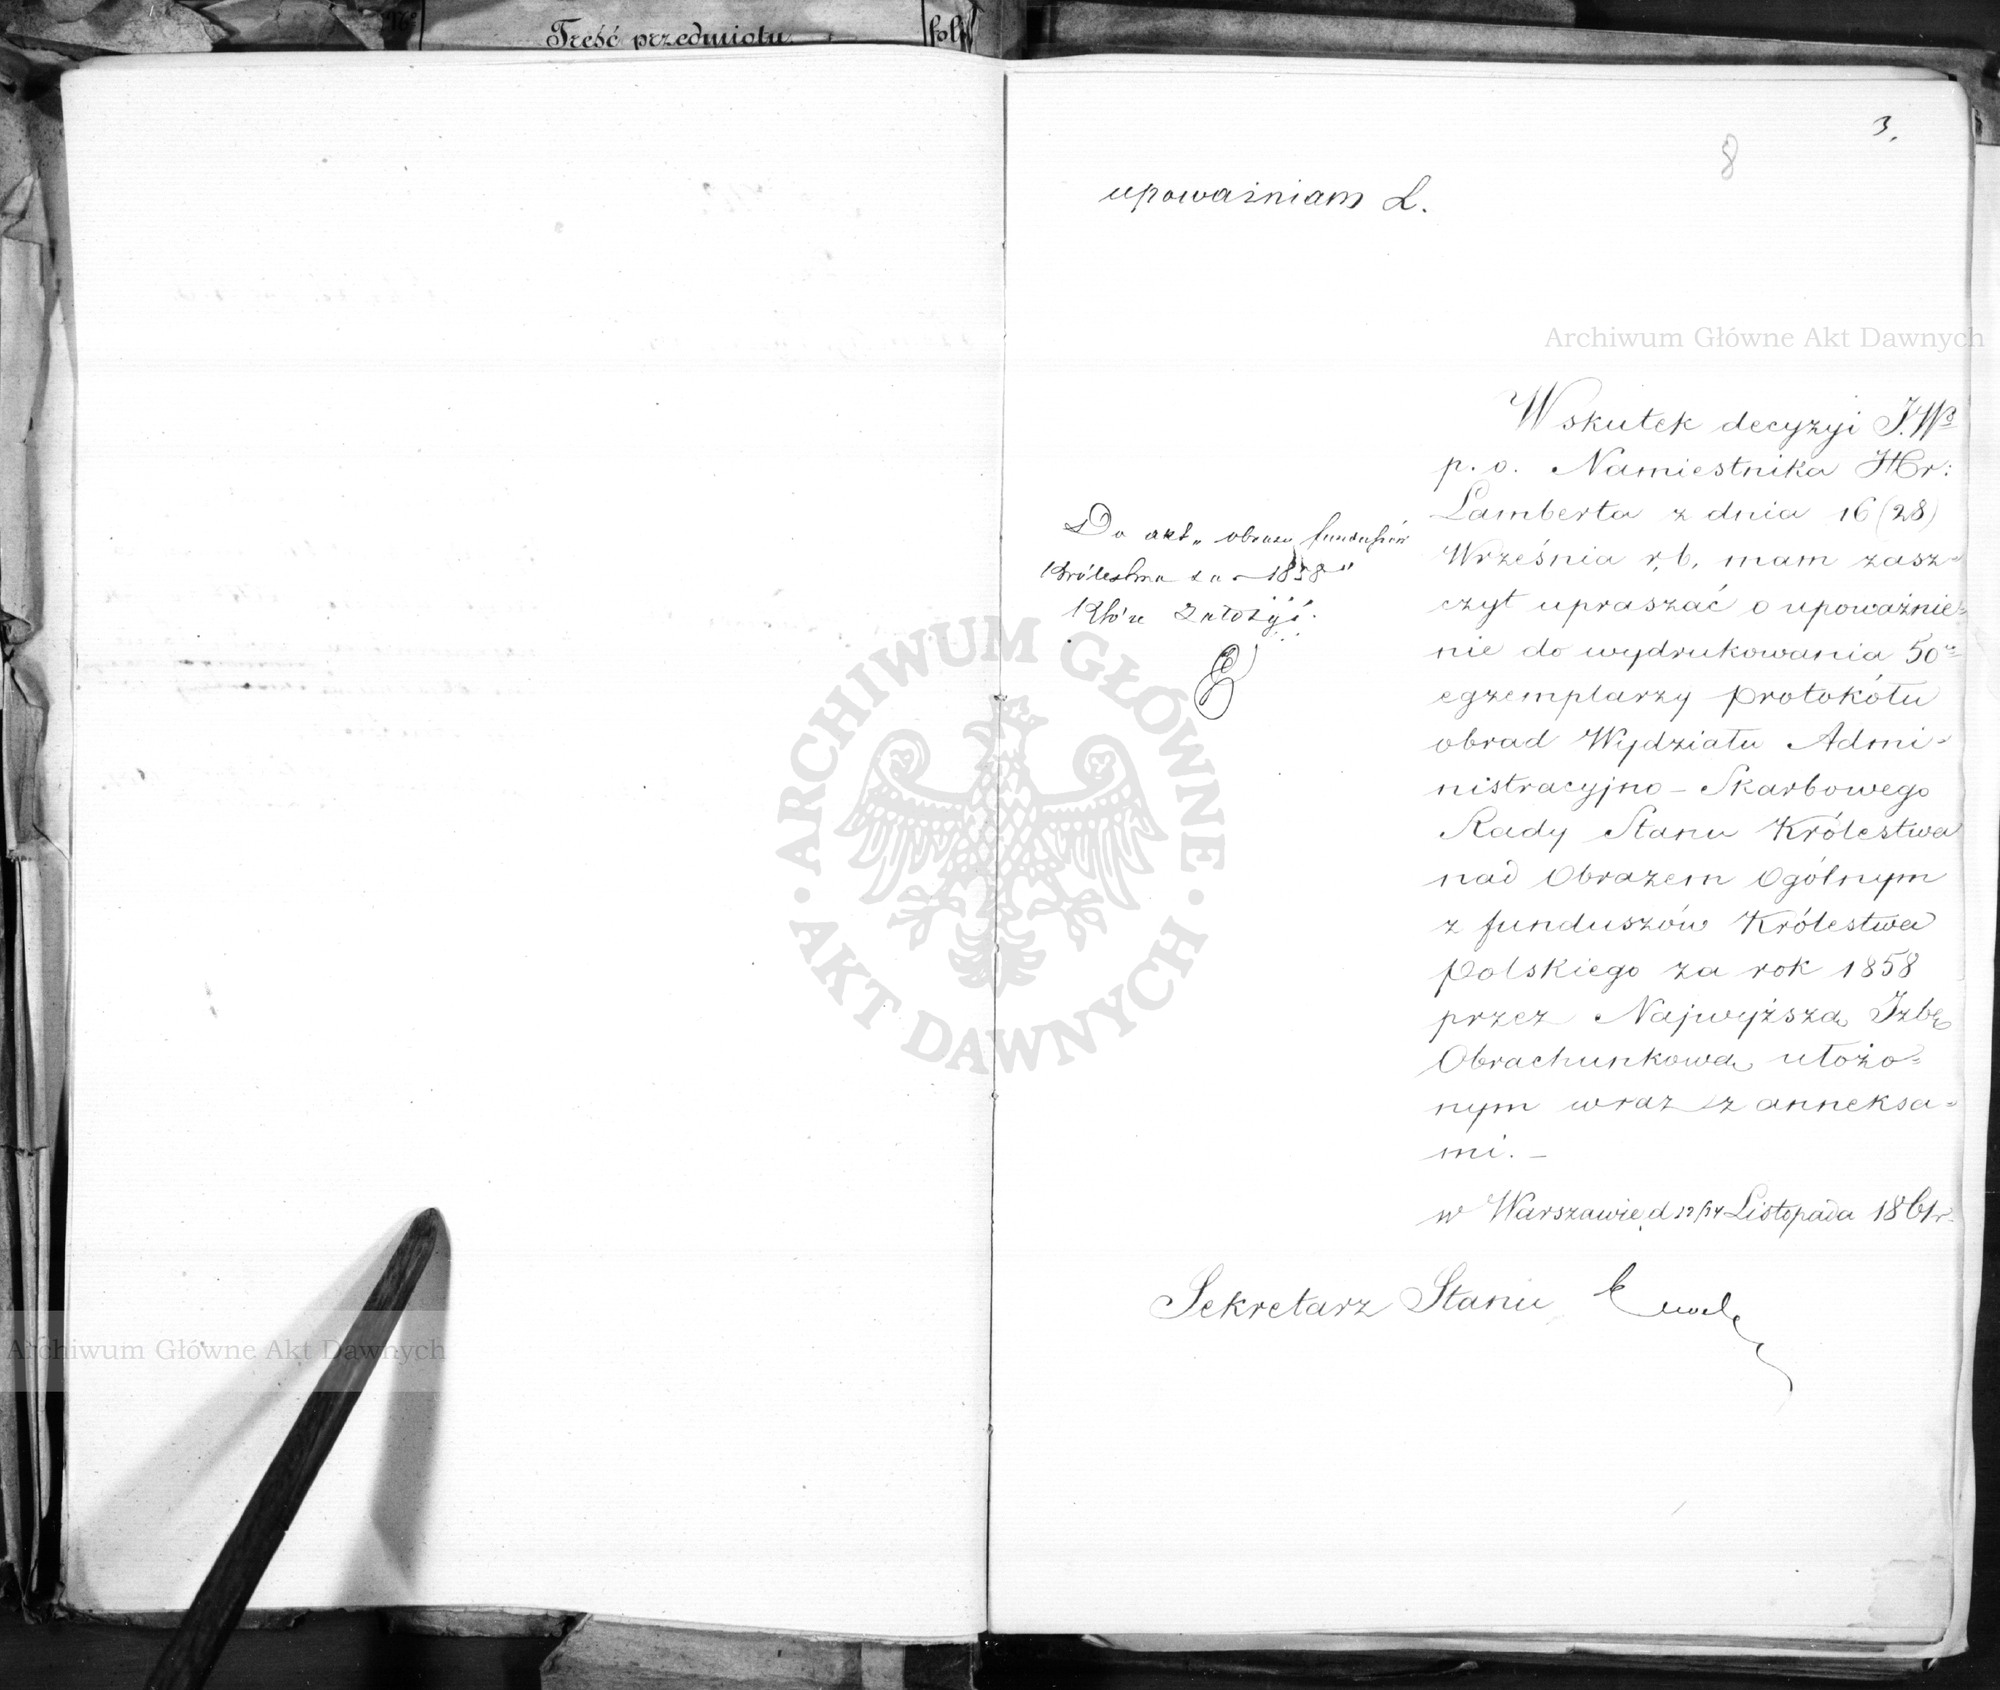 Treść przedmiotu
fol
3.
8
upoważniam L.
Archiwum Główne Akt Dawnych
Wskutek decyzyi J.W°
p. o. Namiestnika Hr:
Lamberta z dnia 16 (28)
Września r, b, mam zasz-
czyt upraszać o upoważnie-
nie do wydrukowania 50u
egzemplarzy protokółu
obrad Wydziału Admi-
nistracyjno - Skarbowego
Rady Stanu Królestwa
nad Obrazem Ogólnym
z funduszów Królestwa
Polskiego za rok 1858
przez Najwyższą Izbę
Obrachunkową ułożo=
nym wraz z anneksa-
mi. -
w Warszawie d 12/24 Listopada 1861 r.
Do akt „ obrazu funduszów
Królestwa za 1858"
które założyć.
Sekretarz Stanu
ARCHIWUM GŁÓWNE
AKT DAWNYCH
Archiwum Główne Akt Dawnych